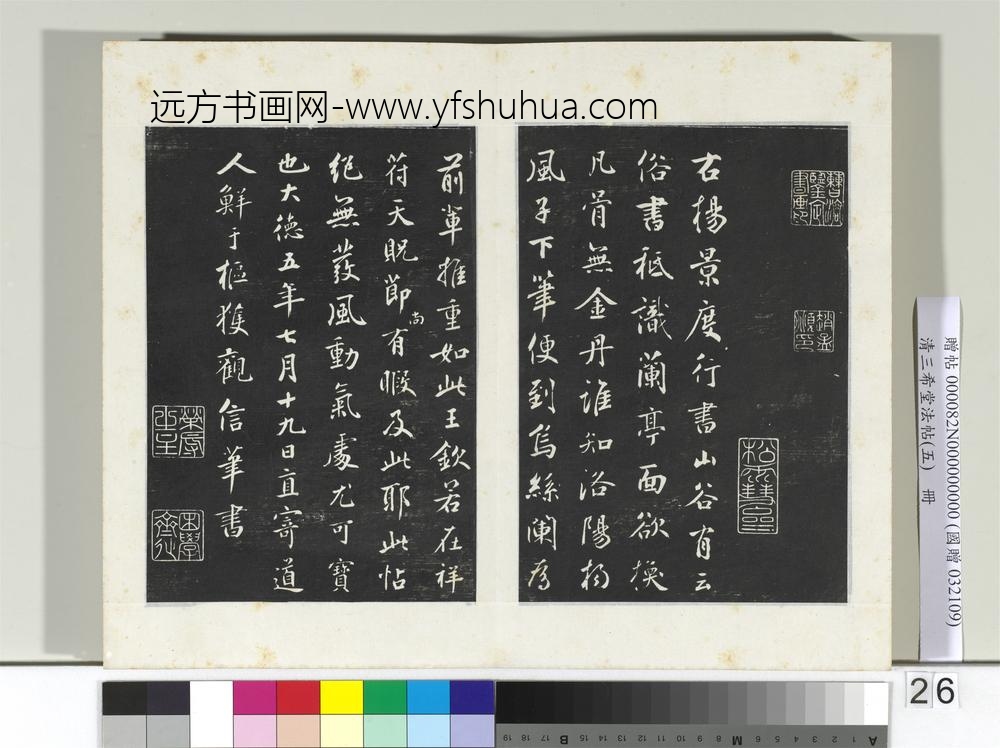 远方书画网-www.yfshuhua.com
右楊景度行書山谷有云
俗書秖識蘭亭面欲換
凡骨無金丹誰知洛陽楊
風子下筆便到烏絲闌爲
前輩推重如此王欽若在祥
符天貺節尚有暇及此耶此帖
絕無蕟風動氣處尤可寶
也大德五年七月十九日直寄道
人鮮于樞獲觀信筆書
贈帖 000082N000000000 (國贈 032109)
清三希堂法帖(五) 冊
26